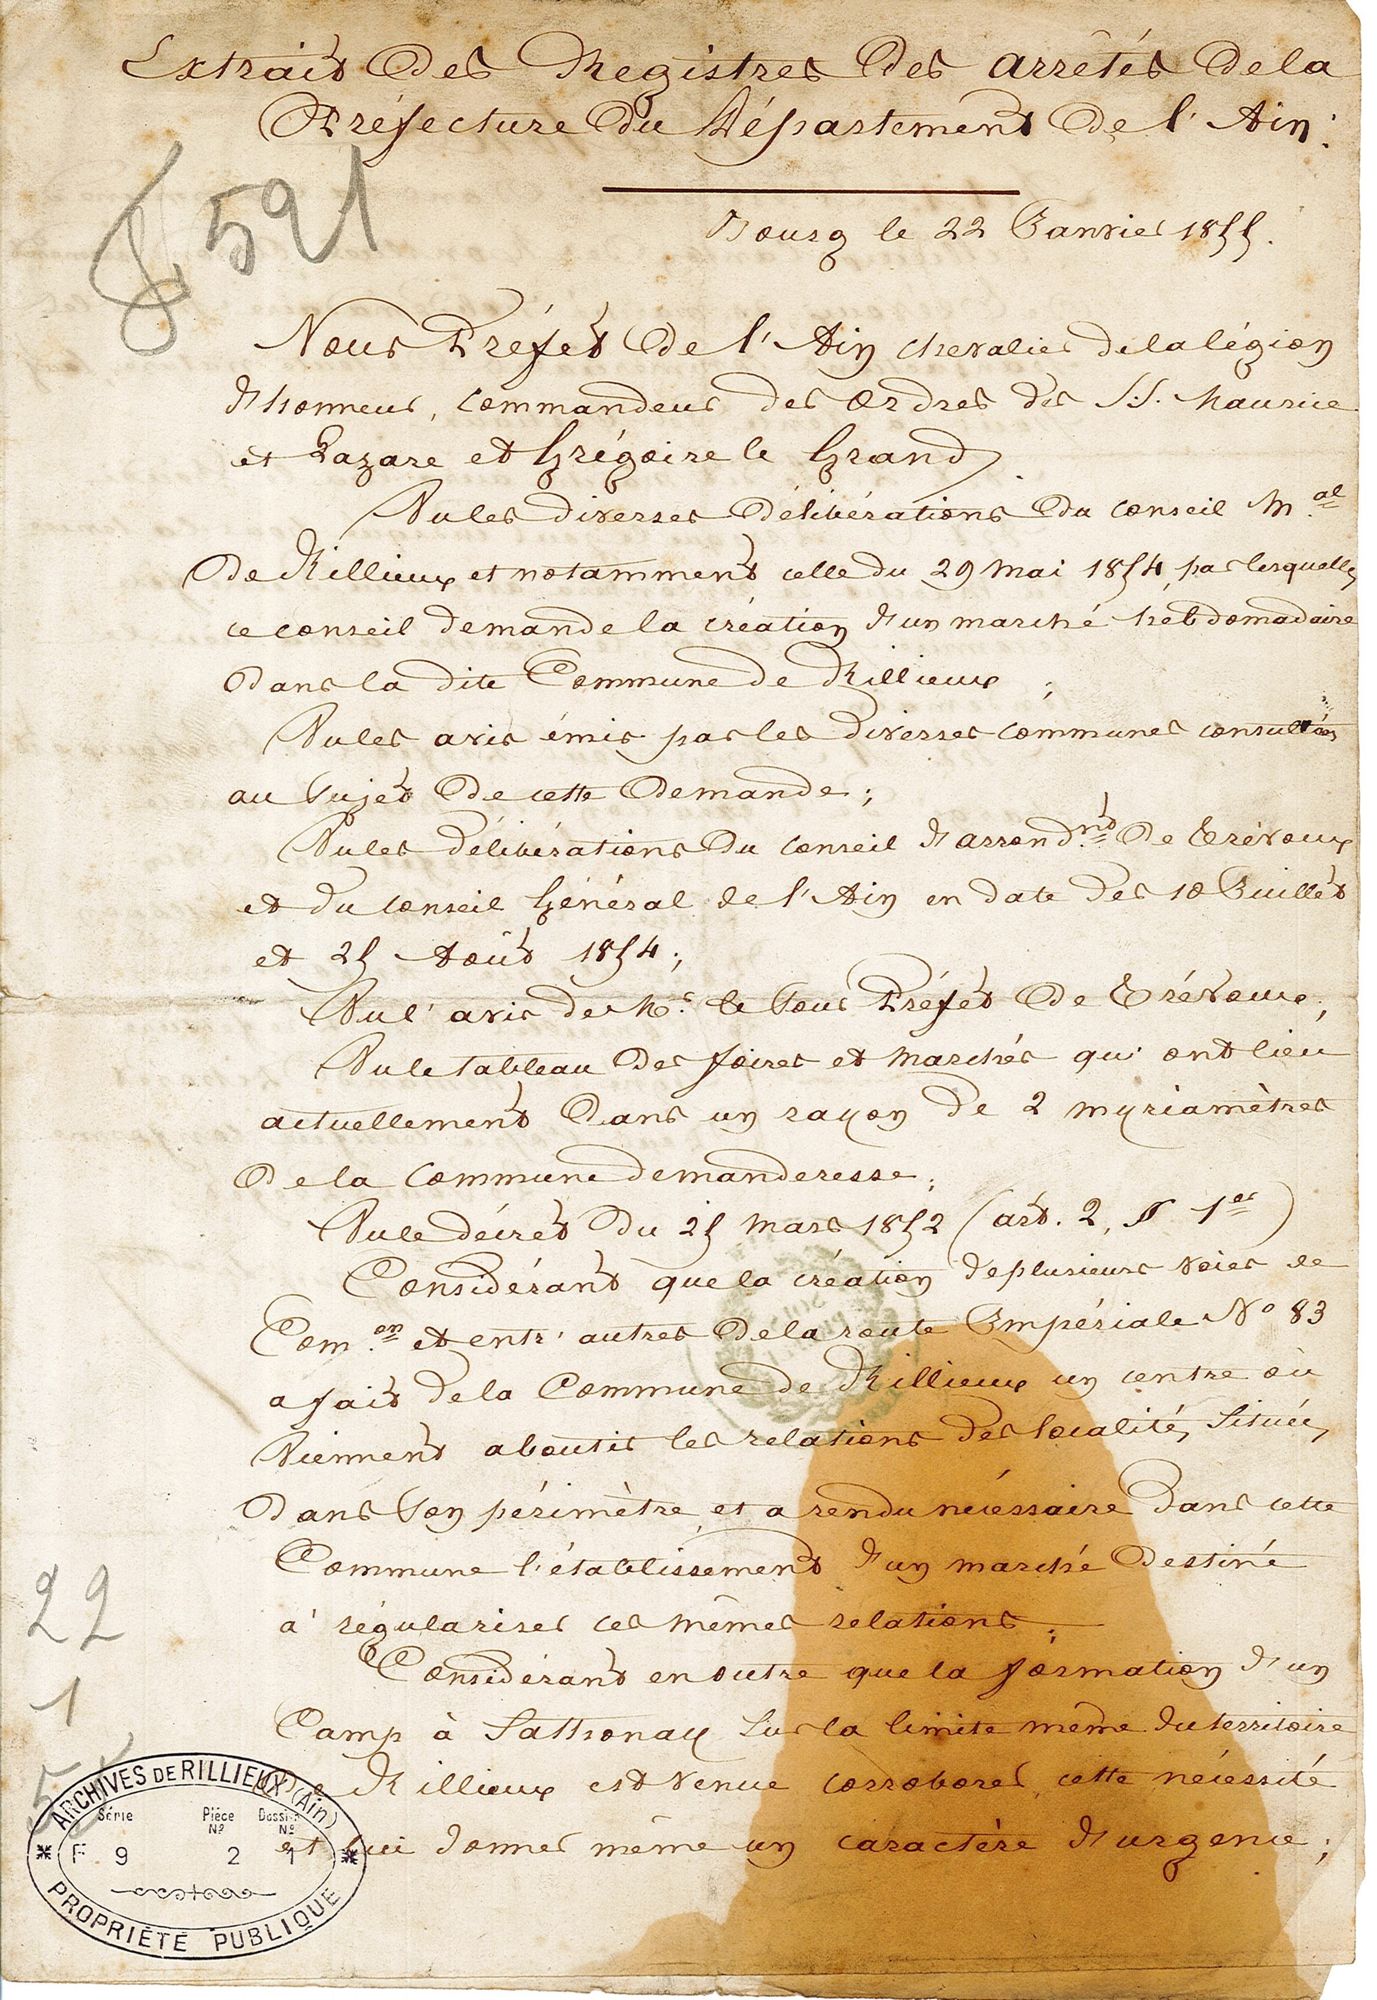 Extrait des Registres des arrêtés de la
Préfecture du Département de l'Ain.
8591
Bourg le 22 Janvier 1855.
Nous Préfet de l'Ain chevalier de la légion
d'honneur, commandeur des ordres des S.S. Maurice
et Lazare et Grégoire le Grand,
Vu les diverses délibérations du conseil M.al
de Rillieux et notamment celle du 29 mai 1854, par lesquelles
ce conseil demande la création d'un marché hébdomadaire
dans la dite Commune de Rillieux ;
Vu les avis émis par les diverses communes consultées
au sujet de cette demande ;
Vu les délibérations du conseil d'arrond.nt de Trévoux
et du conseil Général de l'Ain en date des 10 Juillet
et 25 Août 1854 ;
Vu l'avis de M.r le Sous Préfet de Trévoux ;
Vu le tableau des foires et marchés qui ont lieu
actuellement dans un rayon de 2 myriamètres
de la commune demanderesse ;
Vu le décret du 25 mars 1852 (art. 2, § 1er)
Considérant que la création de plusieurs voies de
Com.on et entr'autres de la route Impériale No 83
a fait de la Commune de Rillieux un centre où
viennent aboutir les relations des localités situées
dans son périmètre et a rendu nécessaire dans cette
Commune l'établissement d'un marché destiné
à régulariser ces mêmes relations.
Considérant en outre que la formation d'un
Camp à Sathonay sur la limite même du territoire
de Rillieux est venue corroborer cette nécessité
et lui donner même un caractère d'urgence ;
22
1
55
ARCHIVES DE RILLIEUX (Ain)
Série Pièce No Dossier No
F 9 2 1
PROPRIÉTÉ PUBLIQUE